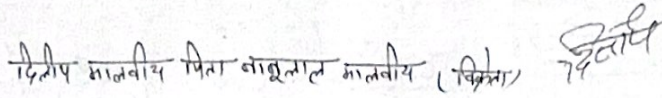 दिलीप मालवीय पिता बाबूलाल मालवीय (विक्रेता) दिलीप